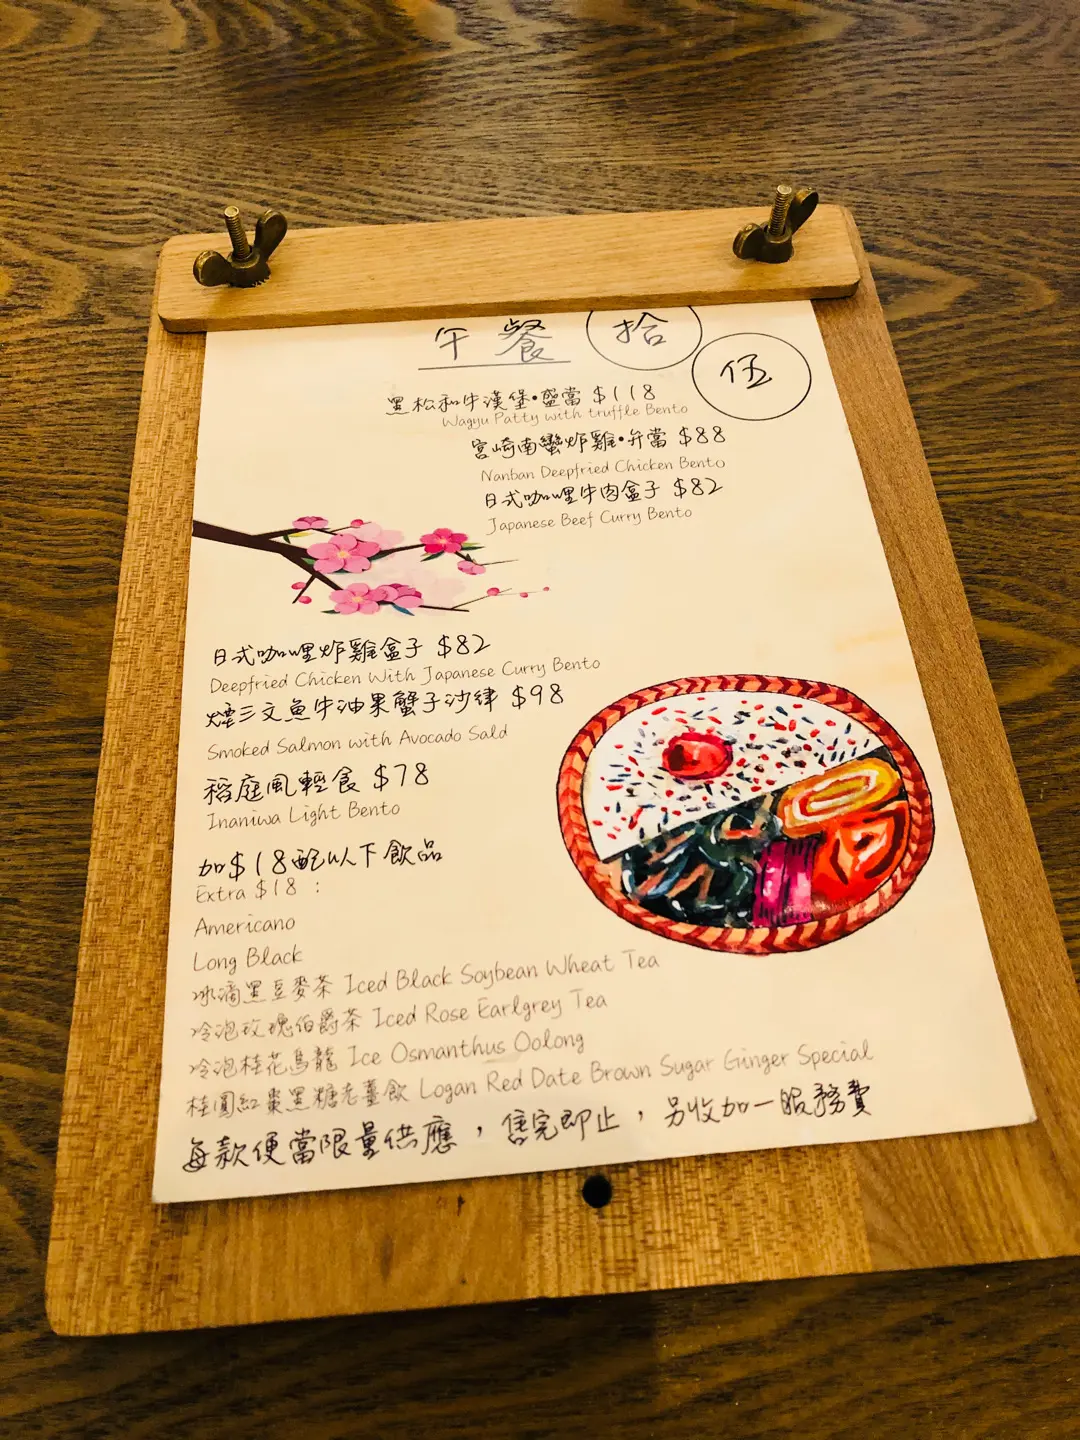 午餐 拾
伍
黑松和牛漢堡•盛當 $118
Wagyu Patty with truffle Bento
宮崎南蠻炸雞•弁當 $88
Nanban Deepfried Chicken Bento
日式咖哩牛肉盒子 $82
Japanese Beef Curry Bento
日式咖哩炸雞盒子 $82
Deepfried Chicken With Japanese Curry Bento
煙三文魚牛油果蟹子沙律 $98
Smoked Salmon with Avocado Sald
稻庭風輕食 $78
Inaniwa Light Bento
加$18配以下飲品
Extra $18 :
Americano
Long Black
冰滴黑豆麥茶 Iced Black Soybean Wheat Tea
冷泡玫瑰伯爵茶 Iced Rose Earlgrey Tea
冷泡桂花烏龍 Ice Osmanthus Oolong
桂圓紅棗黑糖老薑飲 Logan Red Date Brown Sugar Ginger Special
每款便當限量供應，售完即止，另收加一服務費